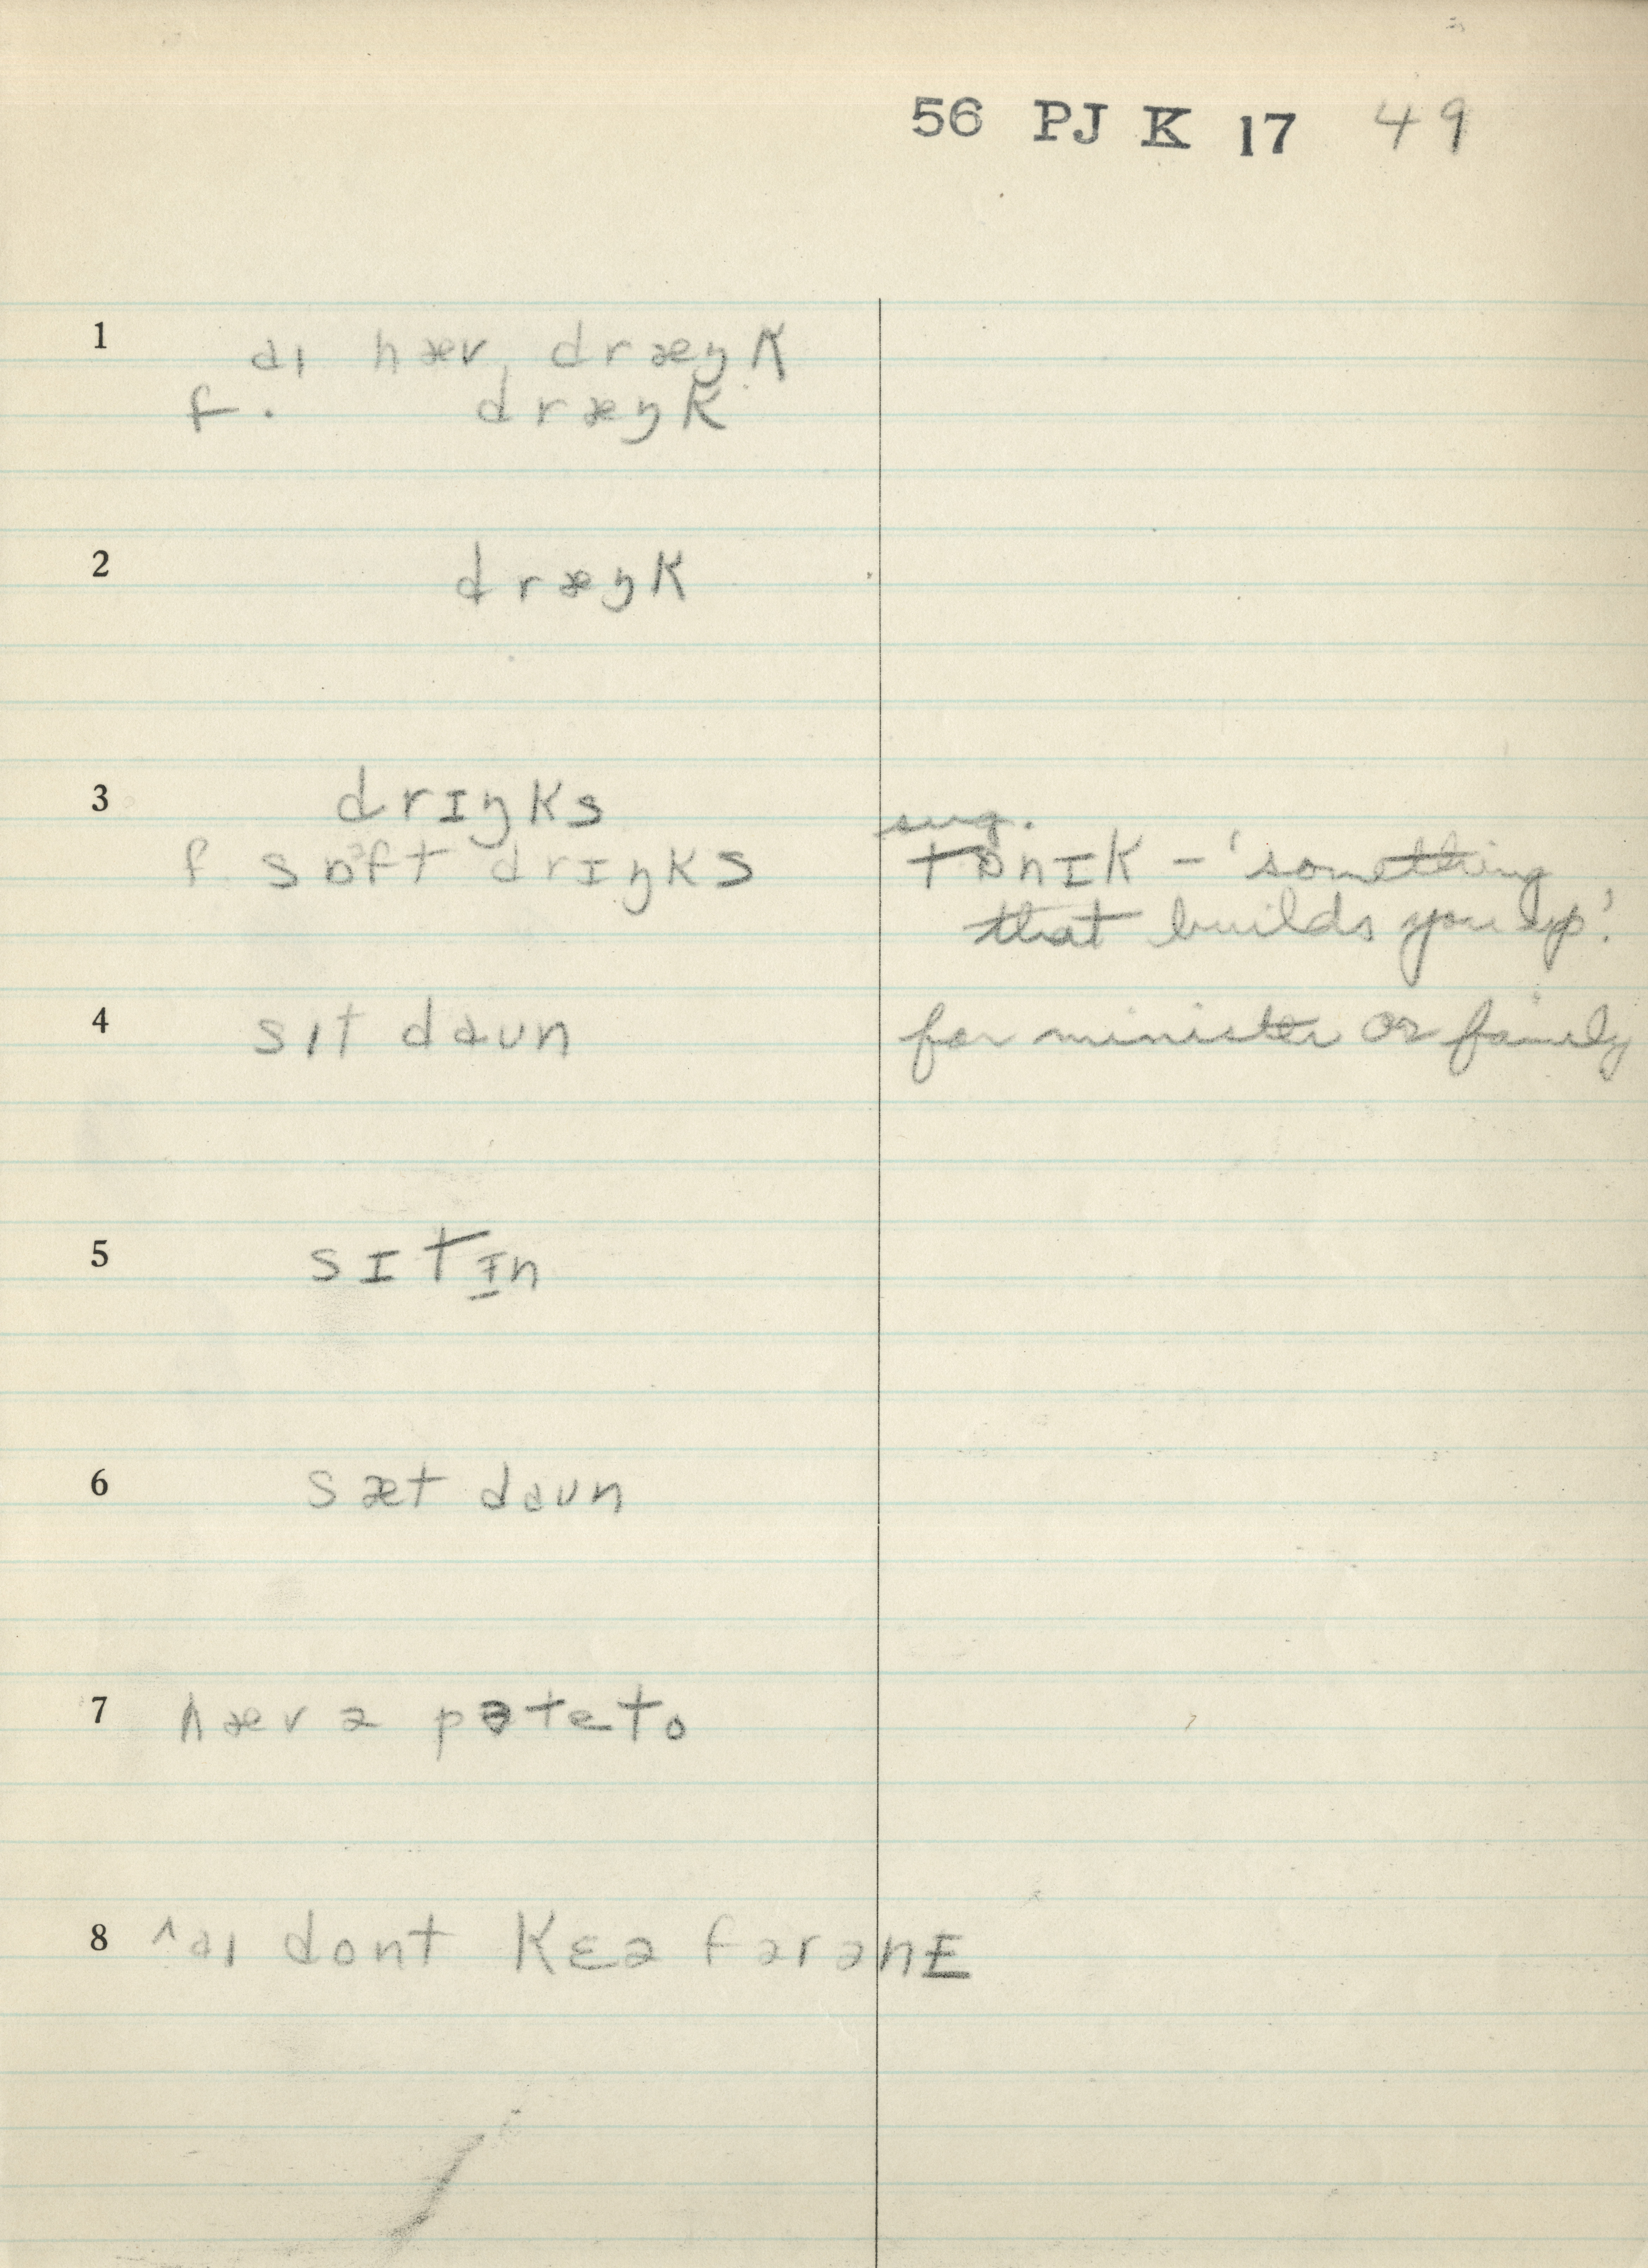 56 PJ K 17 49
1 aɪ hæv dræŋk
f. dræŋk
2 dræŋk
3 drɪŋks
f. sɒᵊft drɪŋks
sug.
tɒnɪk – 'something
that builds you up'.
4 sɪt daʊn for minister or family
5 sɪt ɪn
6 sæt daʊn
7 hæv ə pəteto
8 ^aɪ dont kɛə fərənɛ